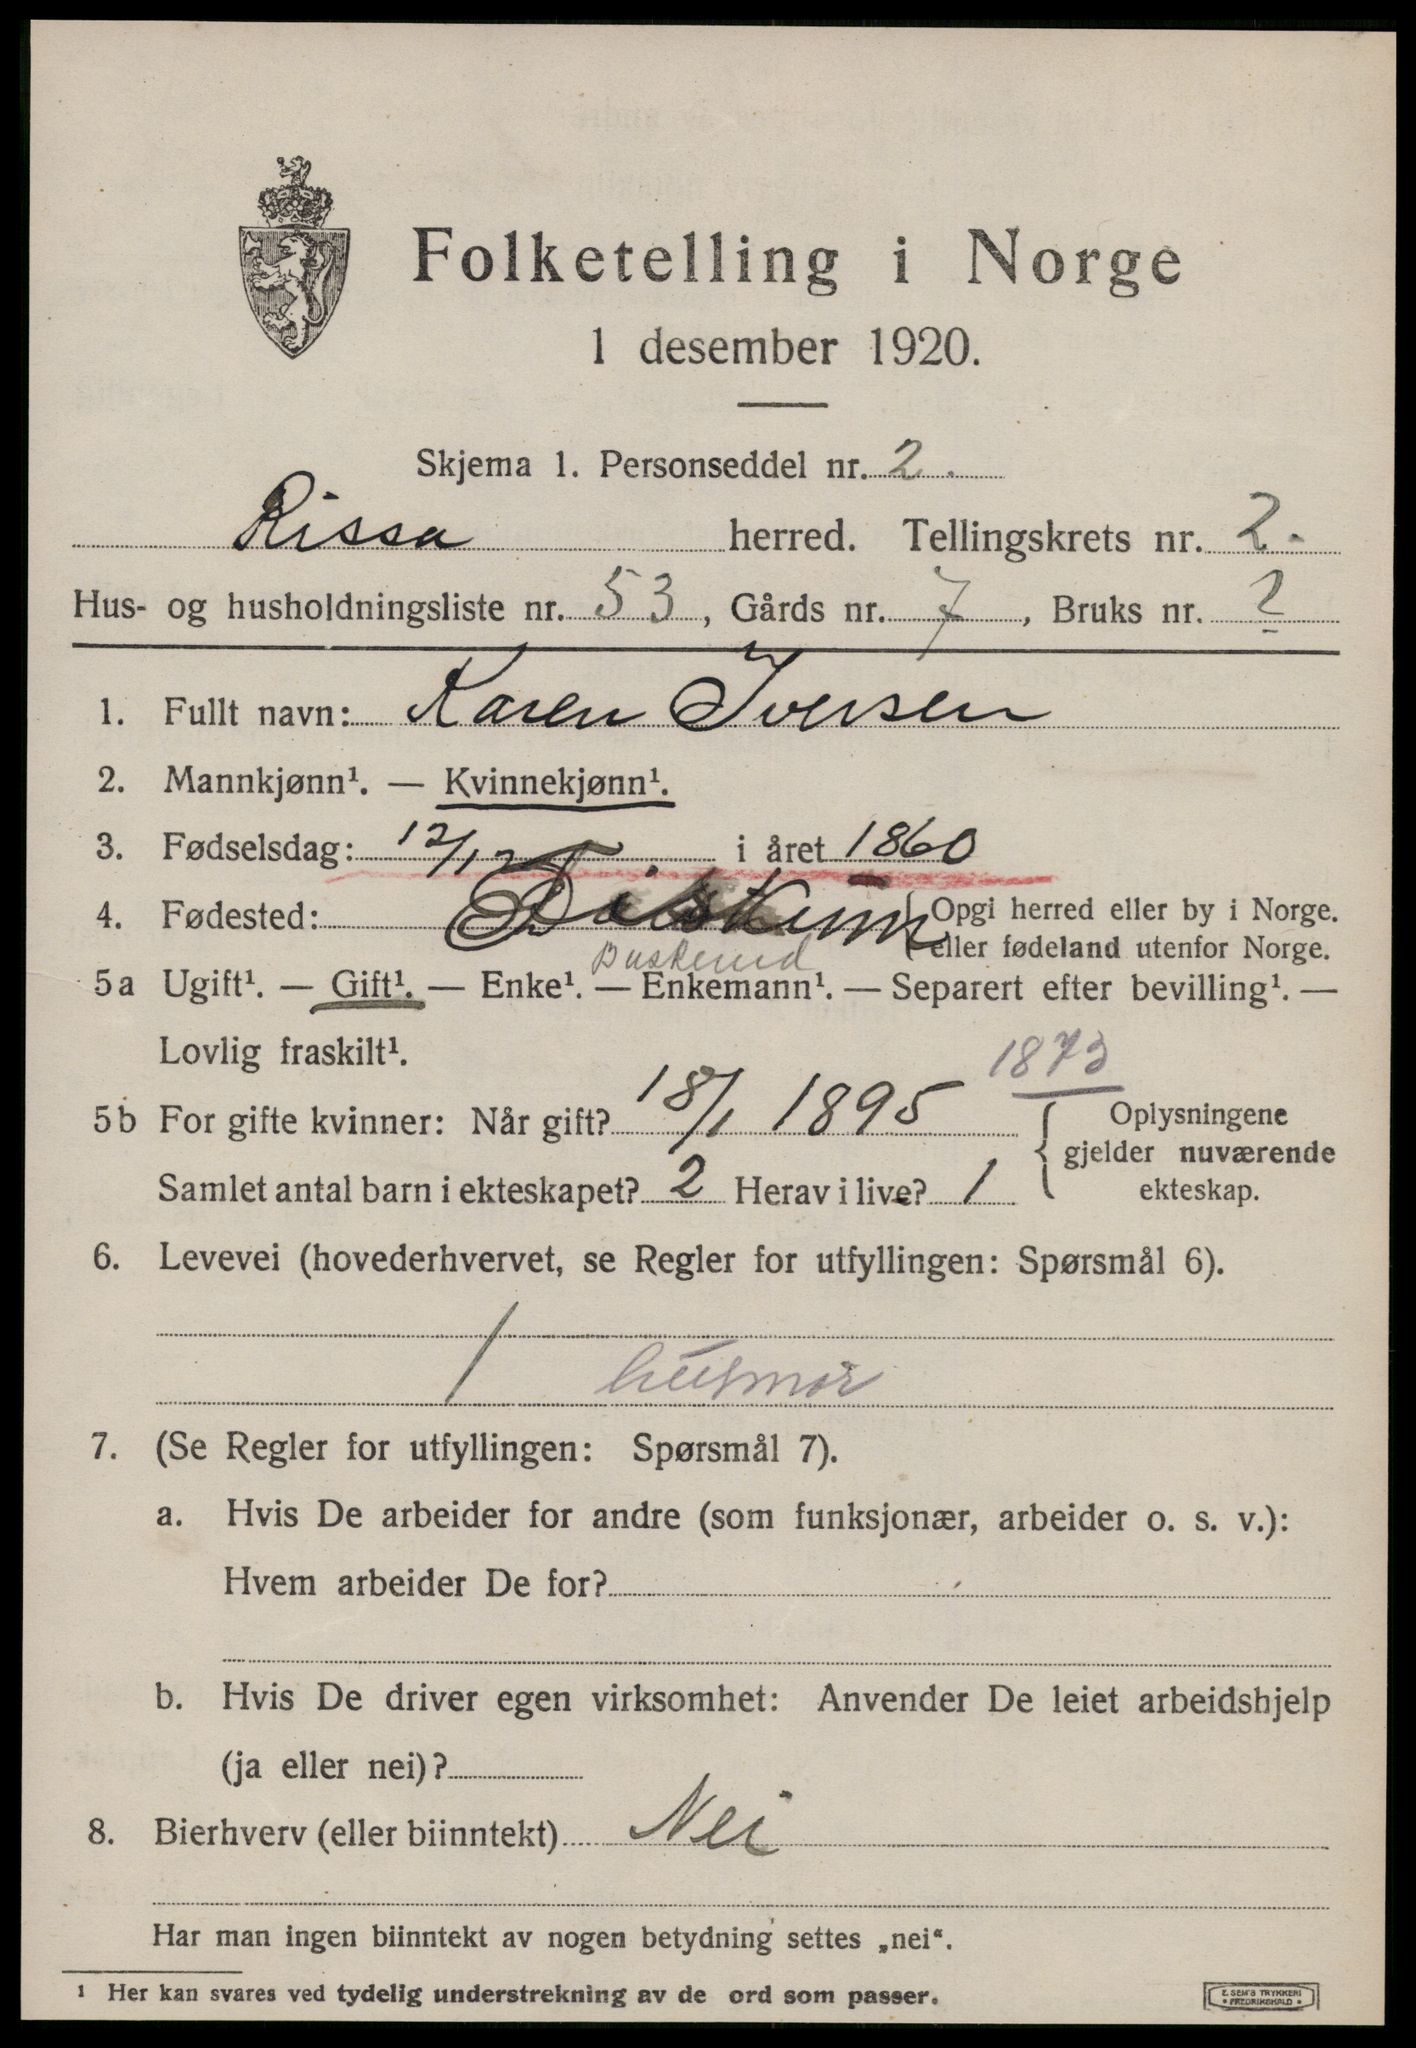 Folketelling i Norge
1 desember 1920.
Skjema 1. Personseddel nr. 2.
Rissa herred. Tellingskrets nr. 2.
Hus- og husholdningsliste nr. 53, Gårds nr. 7, Bruks nr. 2
1. Fullt navn: Karen Iversen
2. Mannkjønn¹. — Kvinnekjønn¹.
3. Fødselsdag: 12/12 i året 1860
4. Fødested: (Opgi herred eller by i Norge.
eller fødeland utenfor Norge.
Buskerud
5a Ugift¹. — Gift¹. — Enke¹. — Enkemann¹. — Separert efter bevilling¹. —
Lovlig fraskilt¹.
1873
5b For gifte kvinner: Når gift? 18/1 1895 { Oplysningene
gjelder nuværende
Samlet antal barn i ekteskapet? 2 Herav i live? 1 ekteskap.
6. Levevei (hovederhvervet, se Regler for utfyllingen: Spørsmål 6).
/ husmor
7. (Se Regler for utfyllingen: Spørsmål 7).
a. Hvis De arbeider for andre (som funksjonær, arbeider o. s. v.):
Hvem arbeider De for?
b. Hvis De driver egen virksomhet: Anvender De leiet arbeidshjelp
(ja eller nei)?
8. Bierhverv (eller biinntekt) Nei
Har man ingen biinntekt av nogen betydning settes „nei“.
¹ Her kan svares ved tydelig understrekning av de ord som passer.
E. SEM'S TRYKKERI
• FREDRIKSHALD •